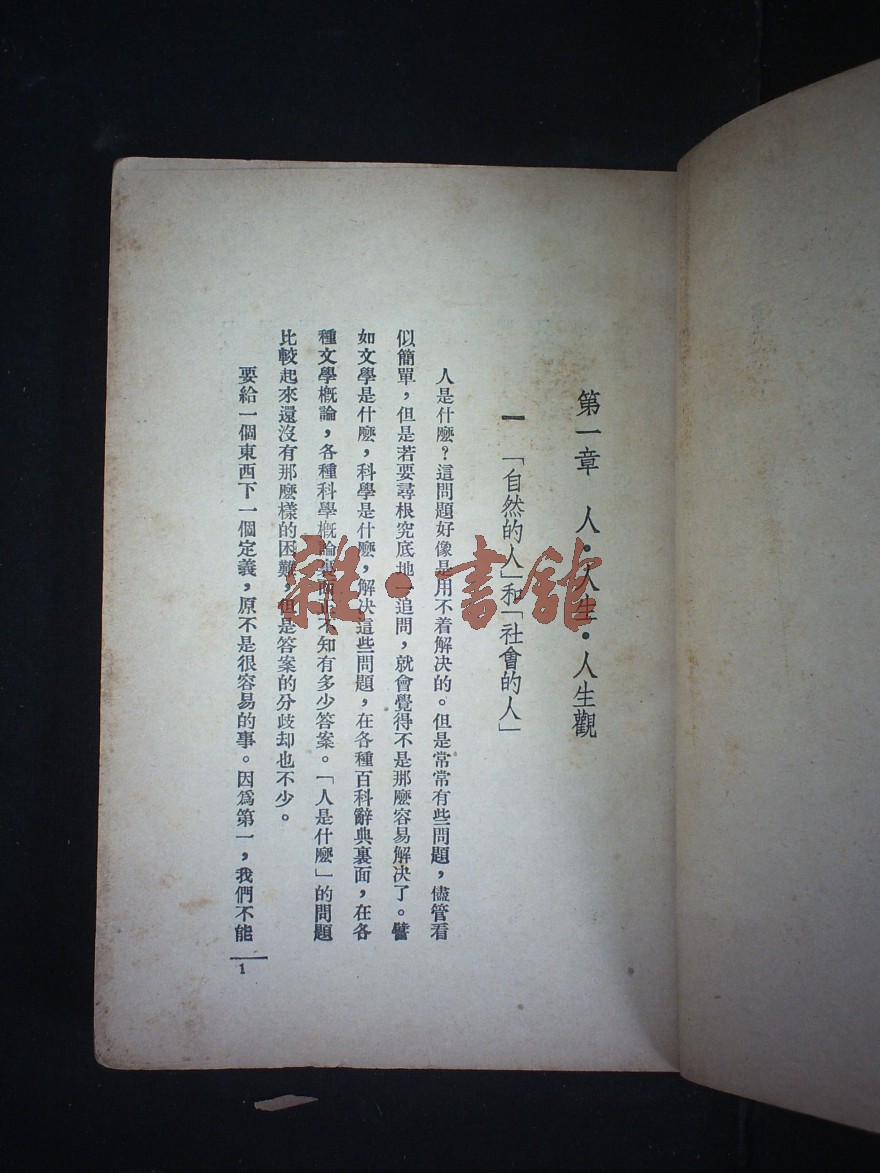 第一章　人・人生・人生觀
一　「自然的人」和「社會的人」
人是什麼？這問題好像是用不着解決的。但是常常有些問題，儘管看
似簡單，但是若要尋根究底地一追問，就會覺得不是那麼容易解決了。譬
如文學是什麼，科學是什麼，解決這些問題，在各種百科辭典裏面，在各
種文學概論，各種科學概論裏面，不知有多少答案。「人是什麼」的問題
比較起來還沒有那麼樣的困難，但是答案的分歧却也不少。
要給一個東西下一個定義，原不是很容易的事。因爲第一，我們不能
1
雜・書館